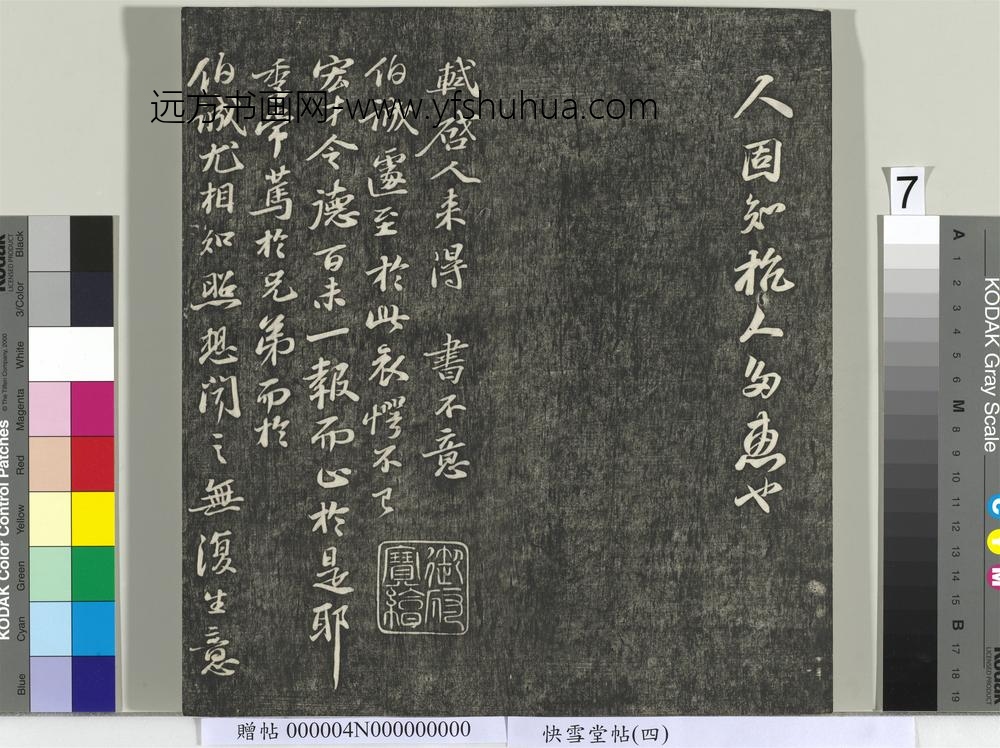 人固知抗人多惠也
軾啓人来得書不意
伯誠遽至於此哀愕不已
宏才令德百未一報而止於是耶
季常篤於兄弟而於
伯誠尤相知照想聞之無復生意
御府寶繪
远方书画网-www.yfshuhua.com
7
贈帖 000004N000000000
快雪堂帖(四)
KODAK Color Control Patches
© The Tiffen Company, 2000
Kodak
LICENSED PRODUCT
Blue
Cyan
Green
Yellow
Red
Magenta
White
3/Color
Black
KODAK Gray Scale
A 1 2 3 4 5 6 M 8 9 10 11 12 13 14 15 B 17 18 19
C
Y
M
Kodak
LICENSED PRODUCT